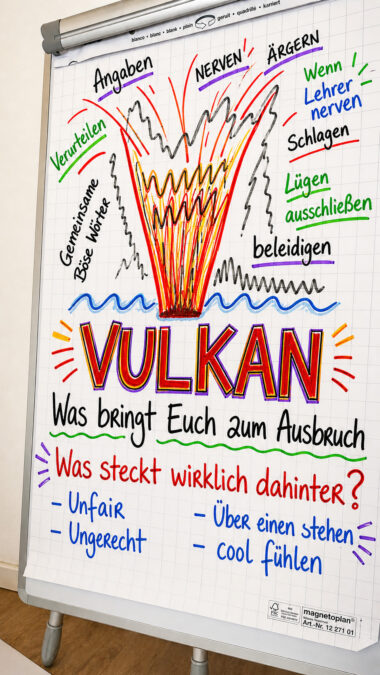 blanco • blanc • blank • plain
geruit • quadrillé • kariert
Angaben
NERVEN!
ÄRGERN
Wenn
Lehrer
nerven
Verurteilen
Schlagen
Gemeinsame
Böse Wörter
Lügen
ausschließen
beleidigen
VULKAN
Was bringt Euch zum Ausbruch
Was steckt wirklich dahinter?
- Unfair
- Ungerecht
- Über einen stehen
- cool fühlen
FSC
magnetoplan®
Art.-Nr. 12 271 01